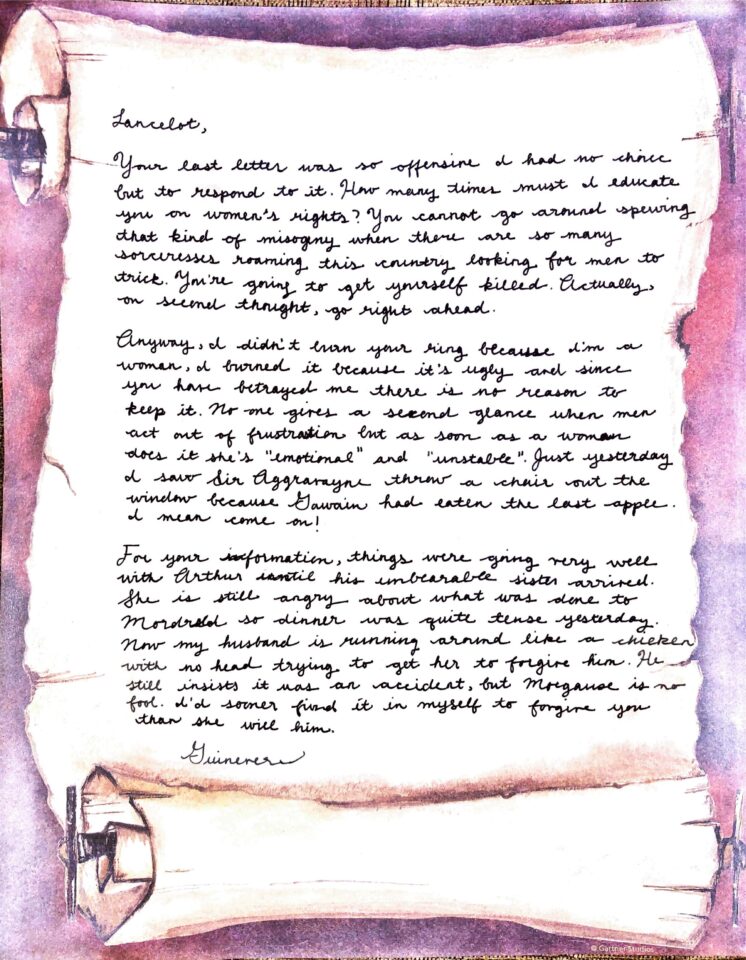 Lancelot,
Your last letter was so offensive I had no choice
but to respond to it. How many times must I educate
you on women's rights? You cannot go around spewing
that kind of misogyny when there are so many
sorceresses roaming this country looking for men to
trick. You're going to get yourself killed. Actually,
on second thought, go right ahead.
Anyway, I didn't burn your ring because I'm a
woman, I burned it because it's ugly and since
you have betrayed me there is no reason to
keep it. No one gives a second glance when men
act out of frustration but as soon as a woman
does it she's "emotional" and "unstable". Just yesterday
I saw Sir Aggravayne throw a chair out the
window because Gawain had eaten the last apple.
I mean come on!
For your information, things were going very well
with Arthur until his unbearable sister arrived.
She is still angry about what was done to
Mordred so dinner was quite tense yesterday.
Now my husband is running around like a chicken
with no head trying to get her to forgive him. He
still insists it was an accident, but Morgause is no
fool. I'd sooner find it in myself to forgive you
than she will him.
Guinevere
© Gartner Studios